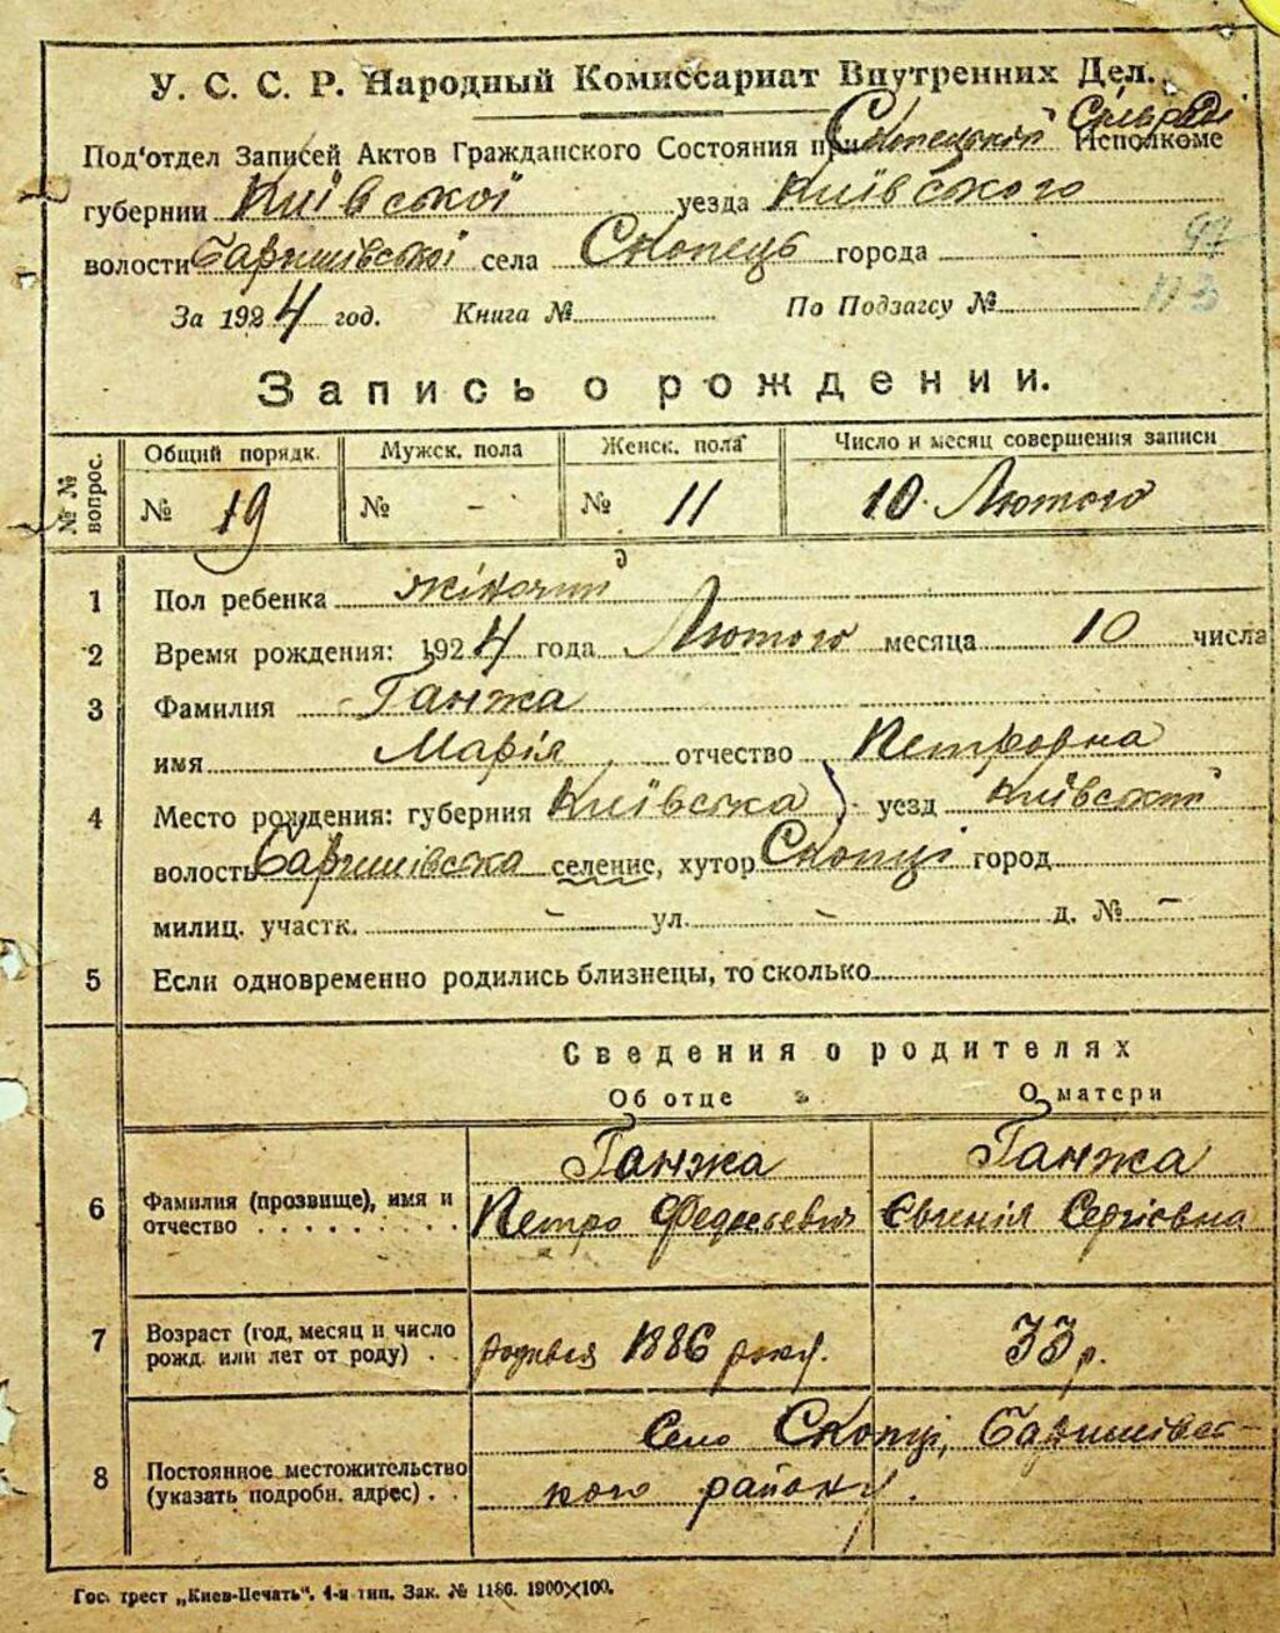 У. С. С. Р. Народный Комиссариат Внутренних Дел.
Под'отдел Записей Актов Гражданского Состояния при Скопецькій Сільраді Исполкоме
губернии Київської уезда Київського
волости Баришівської села Скопець города 97
За 1924 год. Книга № По Подзагсу № 113
Запись о рождении.
№ № вопрос. Общий порядк. Мужск. пола Женск. пола Число и месяц совершения записи
№ 19 № - № 11 10 Лютого
1 Пол ребенка жіночий
2 Время рождения: 1924 года Лютого месяца 10 числа
3 Фамилия Ганжа
имя Марія отчество Петровна
4 Место рождения: губерния Київська уезд Київський
волость Баришівська селение, хутор Скопці город
милиц. участк. - ул. - д. № -
5 Если одновременно родились близнецы, то сколько
Сведения о родителях
Об отце О матери
Ганжа Ганжа
6 Фамилия (прозвище), имя и отчество Петро Федосьевич Євгенія Сергієвна
7 Возраст (год, месяц и число рожд. или лет от роду) родився 1886 року. 33 р.
8 Постоянное местожительство (указать подробн. адрес) Село Скопці, Баришівсь-
кого району.
Гос. трест „Киев-Печать“. 4-я тип. Зак. № 1186. 1900×100.